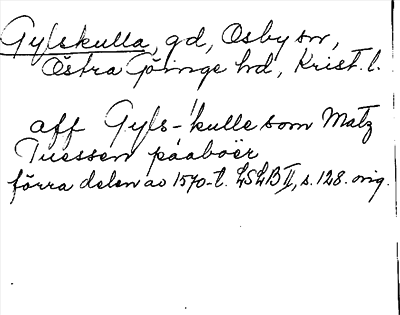 Gylskulla, gd, Osby sn,
Östra Göinge hd, Krist. l.
aff Gyls-kulle som Matz
Tuessen påaboër
förra delen av 1570-t. LSLB II, s. 128. orig.